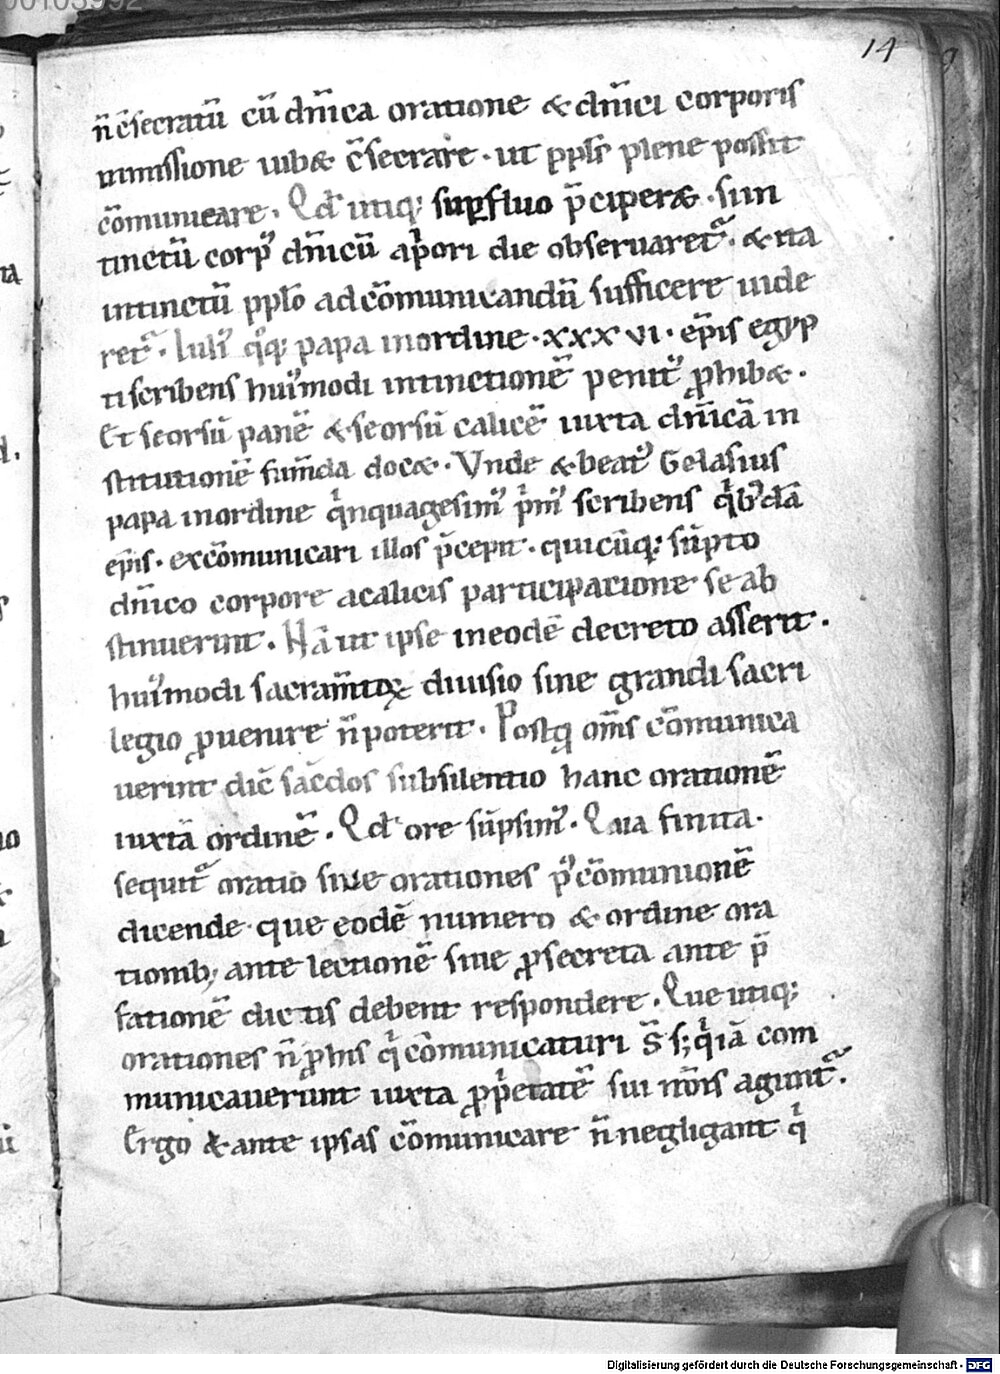 00103992
14
n̄ c̄secratū cū dn̄ica oratione & dn̄ici corporis
inmissione iub& c̄secrare · ut pp̄lꝰ plene possit
cōmunicare. Qd̄ utiq; suꝑfluo p̄ciper& · si in
tinctū corpꝰ dn̄icū apͥori die obseruaretᷣ · & ita
intinctū pp̄lo ad cōmunicandū sufficere uide
retᷣ · Juliꝰ qͦq; papa in ordine · xxxvi · ep̄is egyp
ti scribens huiꝰmodi intinctionē penitꝰ ꝓhib& ·
Et seorsū panē & seorsū calicē iuxta dn̄icā in
stitutionē sum̄da doc& · Vnde & beatꝰ Gelasius
papa in ordine qͥnquagesimꝰ pͥmꝰ scribens qͥbꝰdā
ep̄is · excōmunicari illos p̄cepit · quicūq; sūpto
dn̄ico corpore a calicis participatione se ab
stinuerint · Nā ut ipse in eodē decreto asserit ·
huiꝰmodi sacram̄toꝝ diuisio sine grandi sacri
legio ꝓuenire n̄ poterit · Postq̄ om̄s cōmunica
uerint dic̄ sac̄dos sub silentio hanc orationē
iuxtā ordinē · Qd̄ ore sūpsimꝰ · Qua finita ·
sequitᷣ oratio siue orationes pꝰcōmunionē
dicende · que eodē numero & ordine ora
tionib; ante lectionē siue ꝓ secreta ante p̄
fationē dictis debent respondere · Que utiq;
orationes n̄ ꝓ his qͥ cōmunicaturi s̄ s; qͥ iā com
municauerunt iuxta ꝓpͥetatē sui nōis aguntᷣ ·
Ergo & ante ipsas cōmunicare n̄ negligant qͥ
Digitalisierung gefördert durch die Deutsche Forschungsgemeinschaft - DFG